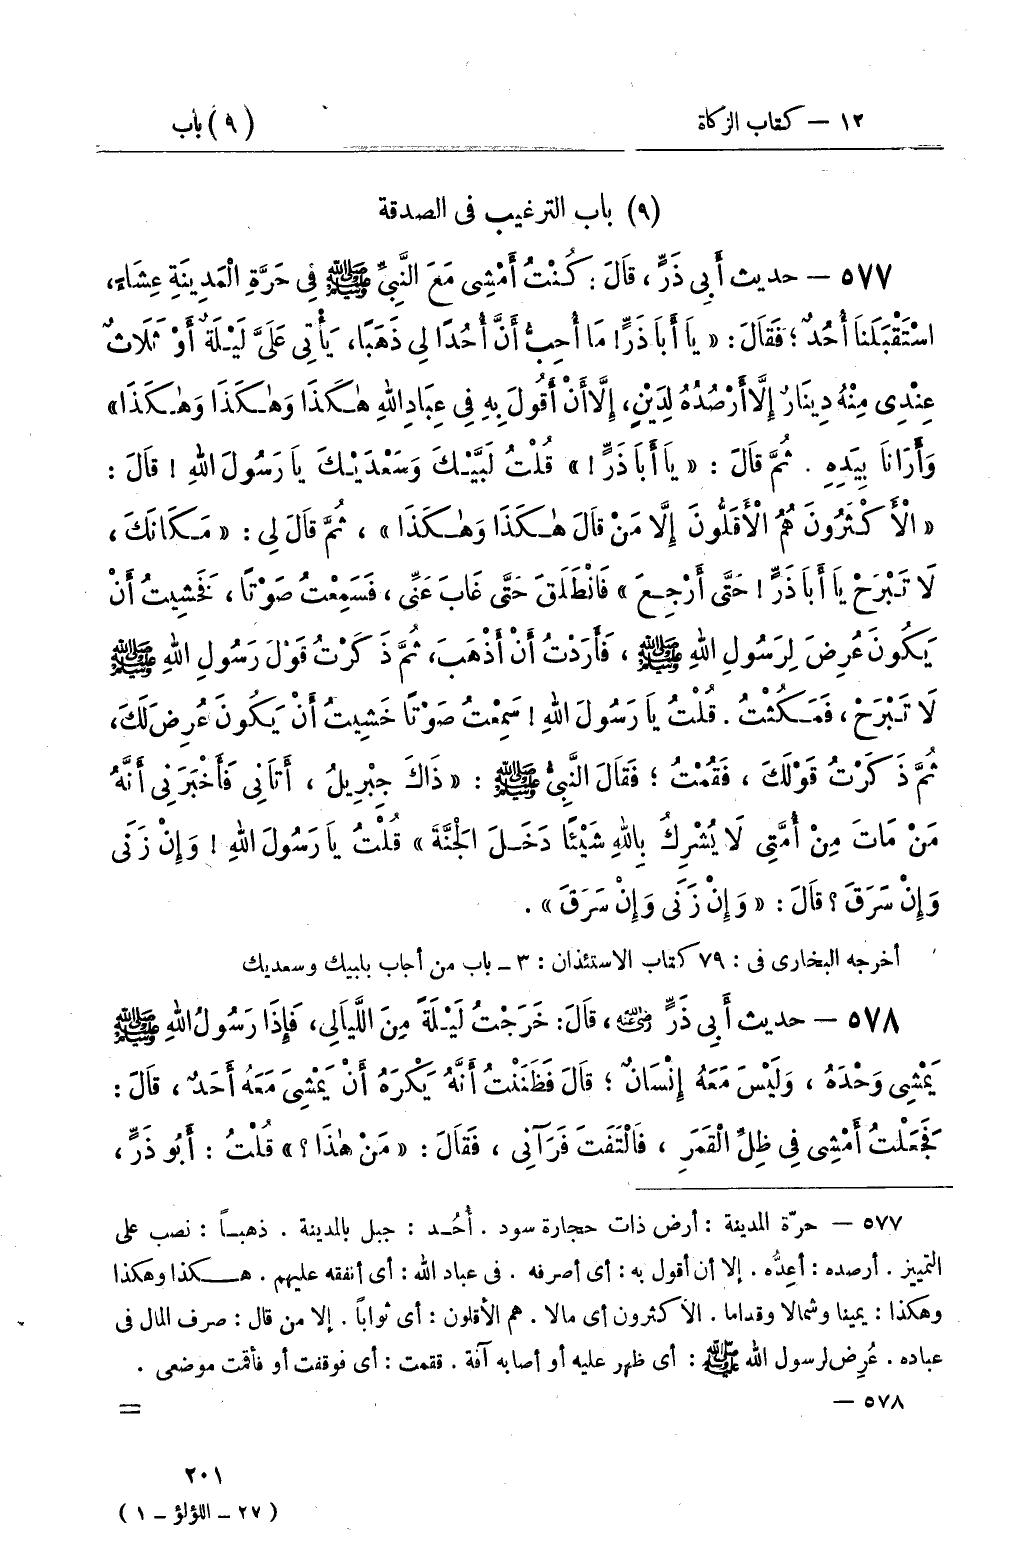 ١٢ – كتاب الزكاة
(٩) باب
(٩) باب الترغيب فى الصدقة
٥٧٧ – حديث أَبِي ذَرٍّ، قَالَ: كُنْتُ أَمْشِى مَعَ النَّبِيِّ ﷺ فِي حَرَّةِ الْمَدِينَةِ عِشَاءً،
اسْتَقْبَلَنَا أُحُدٌ؛ فَقَالَ: « يَا أَبَا ذَرٍّ! مَا أُحِبُّ أَنَّ أُحُدًا لِي ذَهَبًا، يَأْتِي عَلَيَّ لَيْلَةٌ أَوْ ثَلَاثٌ
عِنْدِي مِنْهُ دِينَارٌ إِلَّا أَرْصُدُهُ لِدَيْنٍ، إِلَّا أَنْ أَقُولَ بِهِ فِي عِبَادِ اللهِ هٰكَذَا وَهٰكَذَا وَهٰكَذَا»
وَأَرَانَا بِيَدِهِ . ثُمَّ قَالَ : « يَا أَبَا ذَرٍّ ! » قُلْتُ لَبَّيْكَ وَسَعْدَيْكَ يَا رَسُولَ اللهِ ! قَالَ :
« الْأَكْثَرُونَ هُمُ الْأَقَلُّونَ إِلَّا مَنْ قَالَ هٰكَذَا وَهٰكَذَا » ، ثُمَّ قَالَ لِي : « مَكَانَكَ ،
لَا تَبْرَحْ يَا أَبَا ذَرٍّ ! حَتَّى أَرْجِعَ » فَانْطَلَقَ حَتَّى غَابَ عَنِّى ، فَسَمِعْتُ صَوْتًا ، فَخَشِيتُ أَنْ
يَكُونَ عُرِضَ لِرَسُولِ اللهِ ﷺ ، فَأَرَدْتُ أَنْ أَذْهَبَ، ثُمَّ ذَكَرْتُ قَوْلَ رَسُولِ اللهِ ﷺ
لَا تَبْرَحْ ، فَمَكَثْتُ . قُلْتُ يَا رَسُولَ اللهِ ! سَمِعْتُ صَوْتًا خَشِيتُ أَنْ يَكُونَ عُرِضَ لَكَ،
ثُمَّ ذَكَرْتُ قَوْلَكَ ، فَقُمْتُ ؛ فَقَالَ النَّبِيُّ ﷺ : « ذَاكَ جِبْرِيلُ ، أَتَانِي فَأَخْبَرَنِي أَنَّهُ
مَنْ مَاتَ مِنْ أُمَّتِي لَا يُشْرِكُ بِاللهِ شَيْئًا دَخَلَ الْجَنَّةَ » قُلْتُ يَا رَسُولَ اللهِ ! وَإِنْ زَنَى
وَإِنْ سَرَقَ ؟ قَالَ : « وَإِنْ زَنَى وَإِنْ سَرَقَ » .
أخرجه البخارى فى : ٧٩ كتاب الاستئذان : ٣ ـ باب من أجاب بلبيك وسعديك
٥٧٨ – حديث أَبِي ذَرٍّ رضي الله عنه ، قَالَ: خَرَجْتُ لَيْلَةً مِنَ اللَّيَالِي، فَإِذَا رَسُولُ اللهِ ﷺ
يَمْشِي وَحْدَهُ ، وَلَيْسَ مَعَهُ إِنْسَانٌ ؛ قَالَ فَظَنَنْتُ أَنَّهُ يَكْرَهُ أَنْ يَمْشِيَ مَعَهُ أَحَدٌ ، قَالَ :
فَجَعَلْتُ أَمْشِي فِي ظِلِّ الْقَمَرِ ، فَالْتَفَتَ فَرَآنِي ، فَقَالَ : « مَنْ هٰذَا ؟ » قُلْتُ : أَبُو ذَرٍّ ،
٥٧٧ – حرّة المدينة : أرض ذات حجارة سود . أُحُد : جبل بالمدينة . ذهباً : نصب على
التمييز . أرصده : أعِدُّه . إلا أن أقول به : أى أصرفه . فى عباد الله : أى أنفقه عليهم . هكذا وهكذا
وهكذا : يمينا وشمالا وقداما . الأكثرون أى مالا . هم الأقلون : أى ثواباً . إلا من قال : صرف المال فى
عباده . عُرِض لرسول الله ﷺ : أى ظهر عليه أو أصابه آفة . فقمت : أى فوقفت أو فأقمت موضعى .
٥٧٨ –
=
٢٠١
(٢٧ – اللؤلؤ – ١)